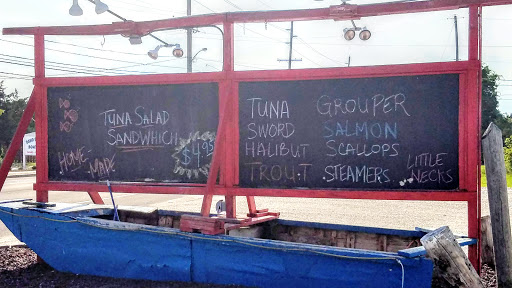 TUNA SALAD
SANDWHICH
$4.95
HOME-
MADE
TUNA GROUPER
SWORD SALMON
HALIBUT SCALLOPS
TROUT STEAMERS
LITTLE
NECKS